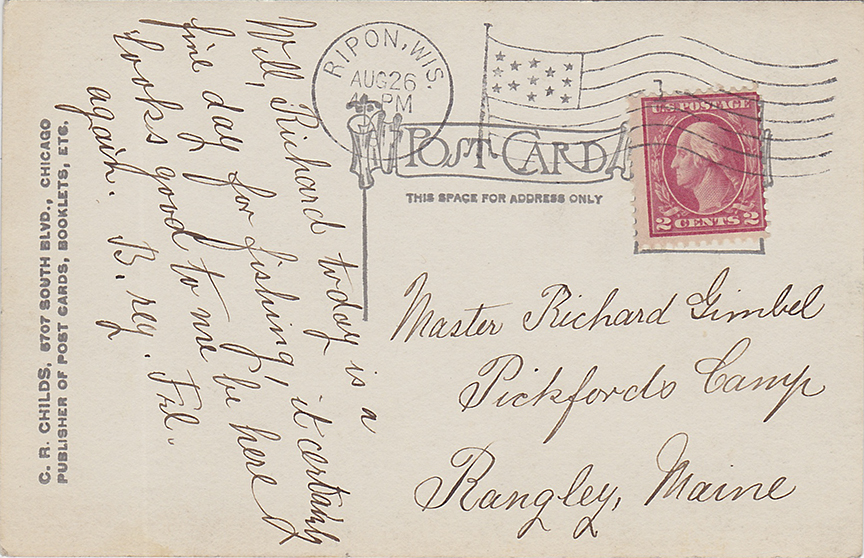 RIPON, WIS.
AUG 26
PM
U.S. POSTAGE
2 CENTS 2
POST CARD
THIS SPACE FOR ADDRESS ONLY
Will, Richard today is a
fine day for fishing, it certainly
looks good to me be here
again. B.
Master Richard Gimbel
Pickfords Camp
Rangley, Maine
C. R. CHILDS, 5707 SOUTH BLVD., CHICAGO
PUBLISHER OF POST CARDS, BOOKLETS, ETC.